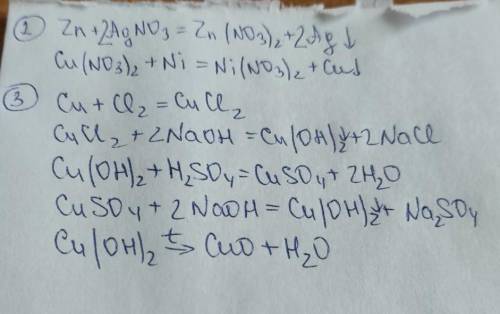 ② Zn + 2AgNO₃ = Zn(NO₃)₂ + 2Ag↓
Cu(NO₃)₂ + Ni = Ni(NO₃)₂ + Cu↓
③ Cu + Cl₂ = CuCl₂
CuCl₂ + 2NaOH = Cu(OH)₂↓ + 2NaCl
Cu(OH)₂ + H₂SO₄ = CuSO₄ + 2H₂O
CuSO₄ + 2NaOH = Cu(OH)₂↓ + Na₂SO₄
Cu(OH)₂ →ᵗ CuO + H₂O